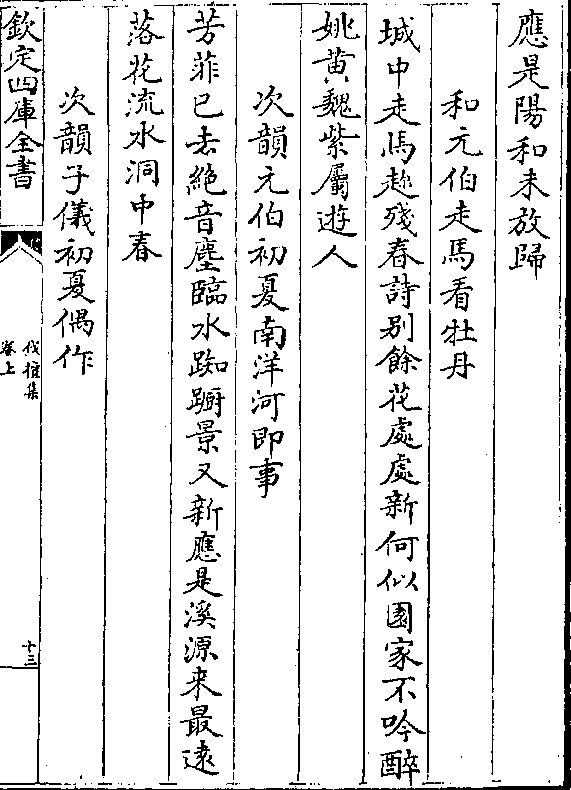 應是陽和未放歸
和元伯走馬看牡丹
城中走馬趂殘春詩别餘花處處新何似園家不吟醉
姚黄魏紫屬遊人
次韻元伯初夏南洋河即事
芳菲已去絶音塵臨水踟蹰景又新應是溪源来最逺
落花流水洞中春
次韻子儀初夏偶作
欽定四庫全書
伐檀集
卷上
十三